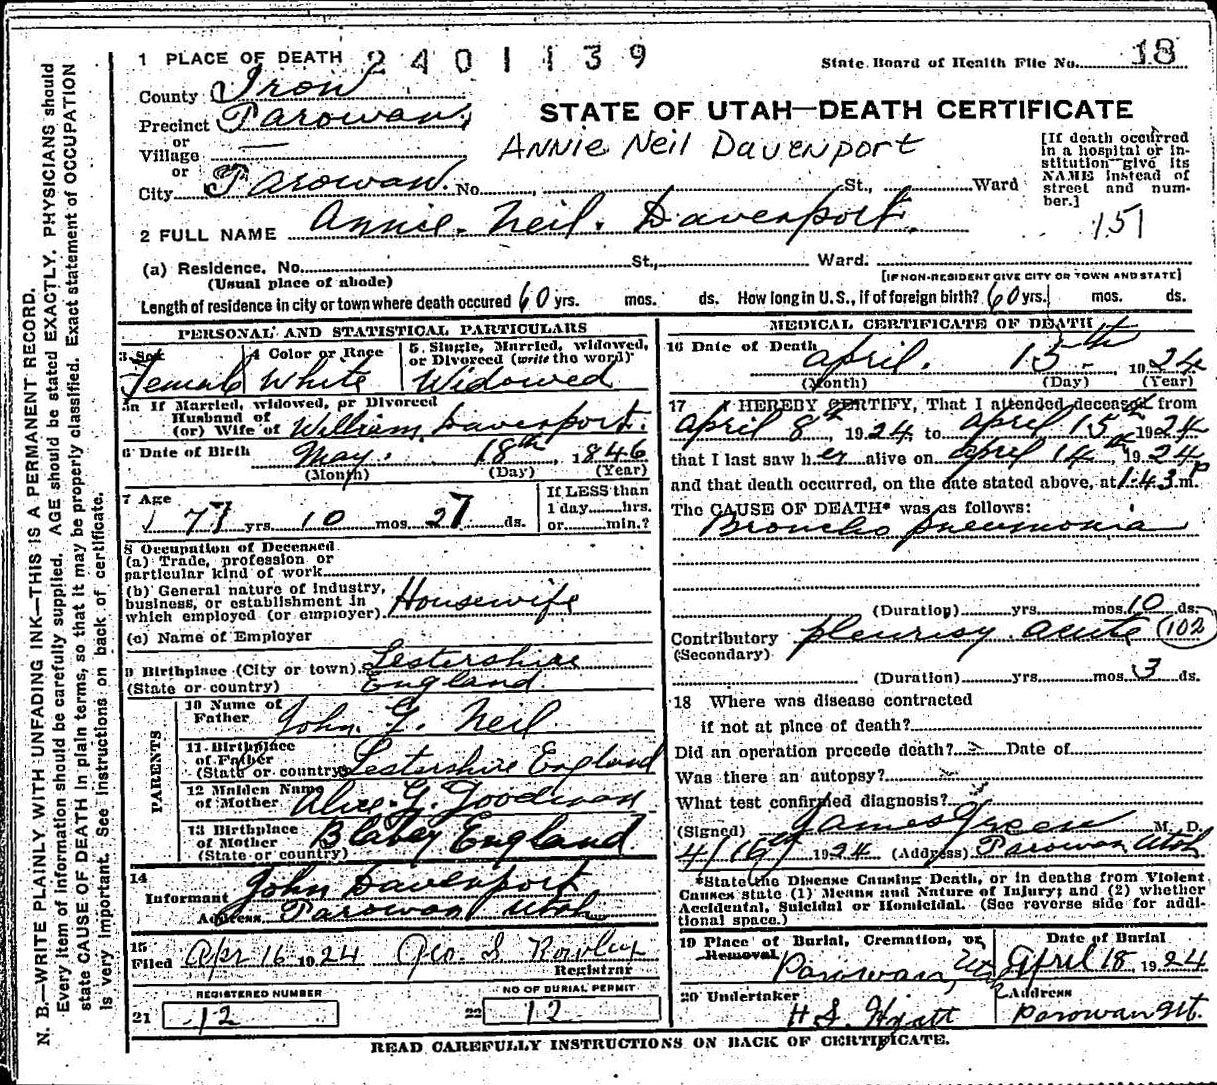 1 PLACE OF DEATH 2401139
State Board of Health File No. 18
County Iron
STATE OF UTAH—DEATH CERTIFICATE
Precinct Parowan
Annie Neil Davenport
or
Village —
or
City Parowan. No. , St., Ward
[If death occurred
in a hospital or in-
stitution give its
NAME instead of
street and num-
ber.]
151
2 FULL NAME Annie. Neil. Davenport.
(a) Residence. No. St., Ward.
(Usual place of abode) [IF NON-RESIDENT GIVE CITY OR TOWN AND STATE]
Length of residence in city or town where death occured 60 yrs. mos. ds. How long in U.S., if of foreign birth? 60 yrs. mos. ds.
PERSONAL AND STATISTICAL PARTICULARS
3 Sex 4 Color or Race 5 Single, Married, widowed,
or Divorced (write the word)
Female White Widowed
5a If Married, widowed, or Divorced
Husband of
(or) Wife of William Davenport.
6 Date of Birth May. 18th, 1846
(Month) (Day) (Year)
7 Age
77 yrs. 10 mos. 27 ds.
If LESS than
1 day hrs.
or min.?
8 Occupation of Deceased
(a) Trade, profession or
particular kind of work
(b) General nature of industry,
business, or establishment in
which employed (or employer) Housewife
(c) Name of Employer
9 Birthplace (City or town) Lestershire
(State or country) England.
PARENTS
10 Name of
Father John. G. Neil
11 Birthplace
of Father
(State or country) Lestershire England
12 Maiden Name
of Mother Alice. G. Goodman
13 Birthplace
of Mother
(State or country) Blabey England.
14
Informant John Davenport
Address Parowan Utah
15
Filed Apr 16 1924 Geo. S Rowley
Registrar
REGISTERED NUMBER NO OF BURIAL PERMIT
21 12 22 12
MEDICAL CERTIFICATE OF DEATH
16 Date of Death April. 15th. 1924
(Month) (Day) (Year)
17 I HEREBY CERTIFY, That I attended deceased from
April 8th, 1924 to April 15th 1924
that I last saw her alive on April 14th, 1924
and that death occurred, on the date stated above, at 1:43 P m.
The CAUSE OF DEATH* was as follows:
Broncho pneumonia
(Duration) yrs. mos. 10 ds.
Contributory pleurisy. acute 102
(Secondary)
(Duration) yrs. mos. 3 ds.
18 Where was disease contracted
if not at place of death?
Did an operation precede death? Date of
Was there an autopsy?
What test confirmed diagnosis?
(Signed) James Green M. D.
4/16th 1924 (Address) Parowan Utah
*State the Disease Causing Death, or in deaths from Violent
Causes state (1) Means and Nature of Injury; and (2) whether
Accidental, Suicidal or Homicidal. (See reverse side for addi-
tional space.)
19 Place of Burial, Cremation, or Date of Burial
Removal
Parowan, Utah April 18, 1924
20 Undertaker Address
H S. Hyatt Parowan Ut.
READ CAREFULLY INSTRUCTIONS ON BACK OF CERTIFICATE.
N. B.—WRITE PLAINLY WITH UNFADING INK—THIS IS A PERMANENT RECORD.
Every item of information should be carefully supplied. AGE should be stated EXACTLY. PHYSICIANS should
state CAUSE OF DEATH in plain terms, so that it may be properly classified. Exact statement of OCCUPATION
is very important. See instructions on back of certificate.